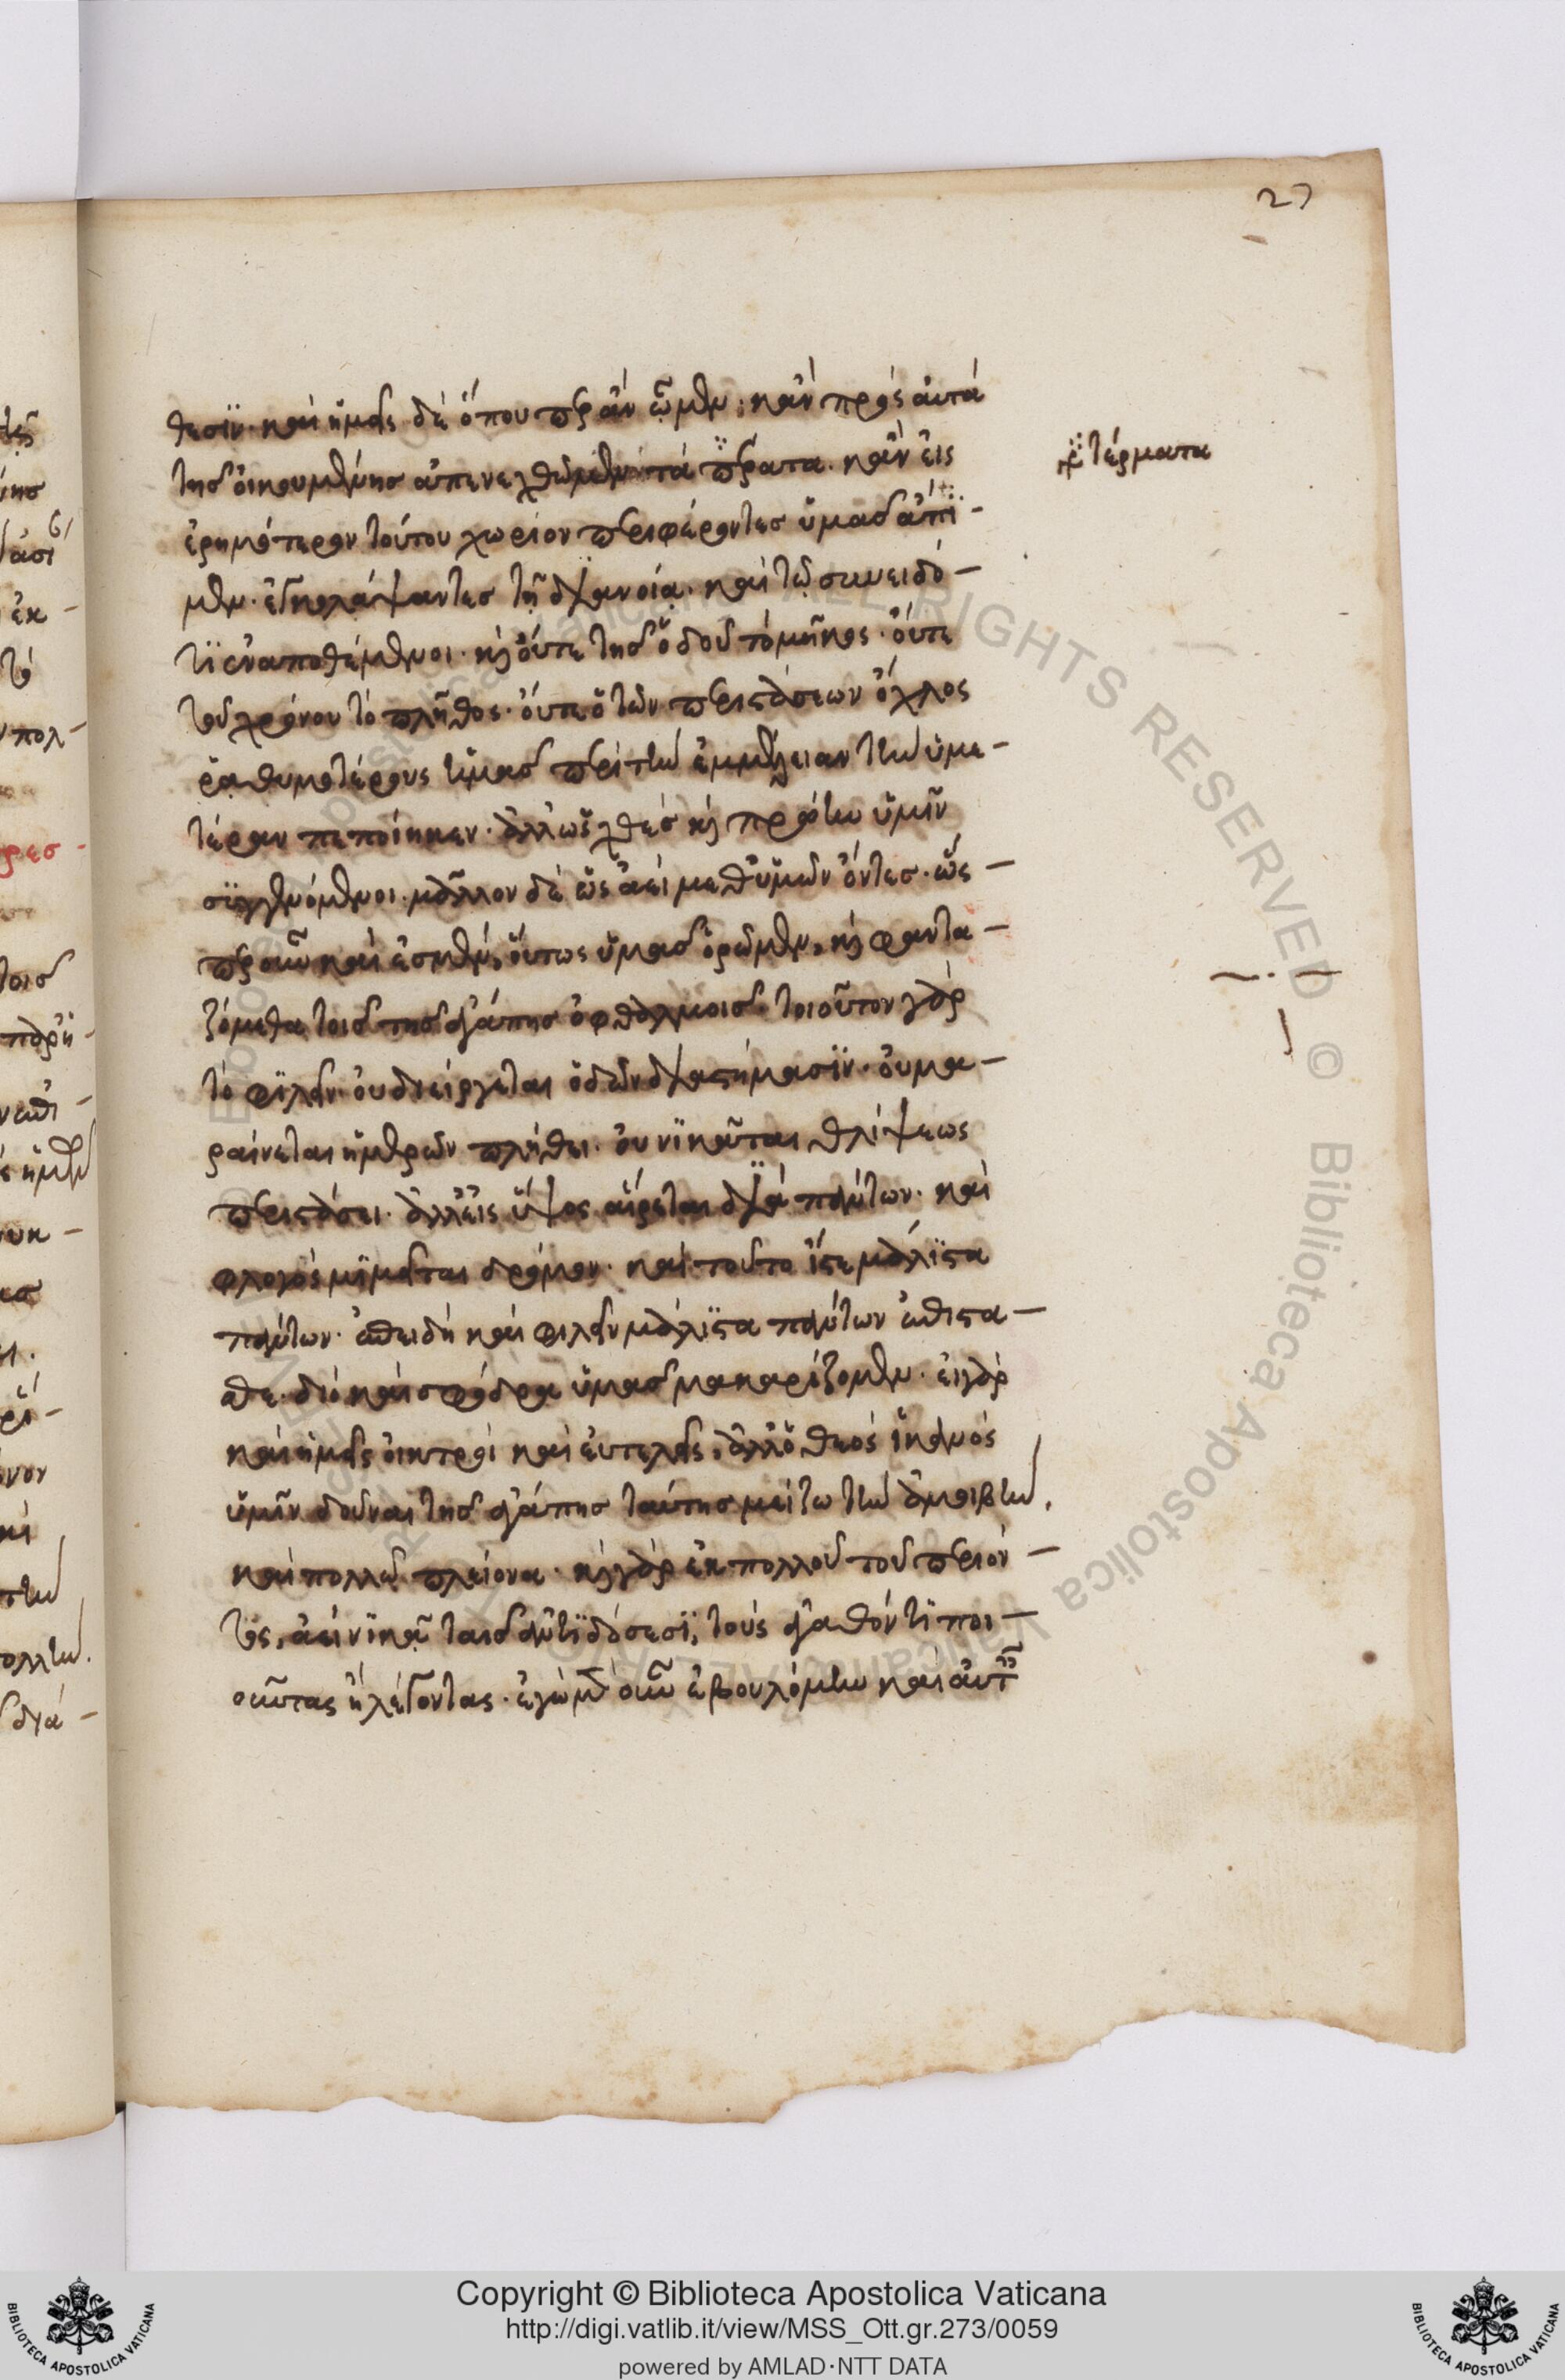 27
θεσϊν· καὶ ἡμεῖς δὲ ὅπου περ ἂν ὦμεν· κἂν πρὸς αὐτὰ
τῆς οἰκουμένης ἀπενεχθῶμεν τὰ πέρατα· κἂν εἰς
τέρματα
ἐρημότερον τούτου χωρίον περιφέροντες ὑμᾶς ἄπι-
μεν· ἐγκολάψαντες τῇ διανοίᾳ· καὶ τῷ συνειδό-
τϊ ἐναποθέμενοι· καὶ οὔτε τῆς ὁδοῦ τὸ μῆκος· οὔτε
τοῦ χρόνου τὸ πλῆθος· οὔτε ὁ τῶν περιστάσεων ὄχλος
ῥαθυμοτέρους ἡμᾶς περὶ τὴν ἐμμέλειαν τὴν ὑμε-
τέραν πεποίηκεν· ἀλλ' ὡς χθὲς καὶ πρώην ὑμῖν
συγγενόμενοι· μᾶλλον δὲ ὡς ἀεὶ μεθ' ὑμῶν ὄντες· ὡς
περ οὖν καὶ ἐσμέν, οὕτως ὑμᾶς ὁρῶμεν, καὶ φαντα-
ζόμεθα τοῖς τῆς ἀγάπης ὀφθαλμοῖς· τοιοῦτον γὰρ
τὸ φϊλεῖν· οὐ διείργεται ὁδῶν διαστήμασϊν· οὐ μα-
ραίνεται ἡμερῶν πλήθει· οὐ νϊκᾶται θλίψεως
περιστάσει· ἀλλ' εἰς ὕψος αἴρεται διὰ πάντων· καὶ
φλογὸς μϊμεῖται δρόμον· καὶ τοῦτο ἴστε μάλϊστα
πάντων· ἐπειδὴ καὶ φιλεῖν μάλϊστα πάντων ἐπίστα-
σθε· διὸ καὶ σφόδρα ὑμᾶς μακαρίζομεν· εἰ γὰρ
καὶ ἡμεῖς οἰκτροὶ καὶ εὐτελεῖς, ἀλλ' ὁ θεὸς ἱκανὸς
ὑμῖν δοῦναι τῆς ἀγάπης ταύτης μείζω τὴν ἀμοιβήν,
καὶ πολλῷ πλείονα· καὶ γὰρ ἐκ πολλοῦ τοῦ περιόν-
τος, ἀεὶ νϊκᾷ ταῖς ἀντϊδόσεσϊ, τοὺς ἀγαθόν τϊ ποι-
οῦντας ἢ λέγοντας· ἐγὼ μὲν οὖν ἐβουλόμην καὶ αὐτῇ